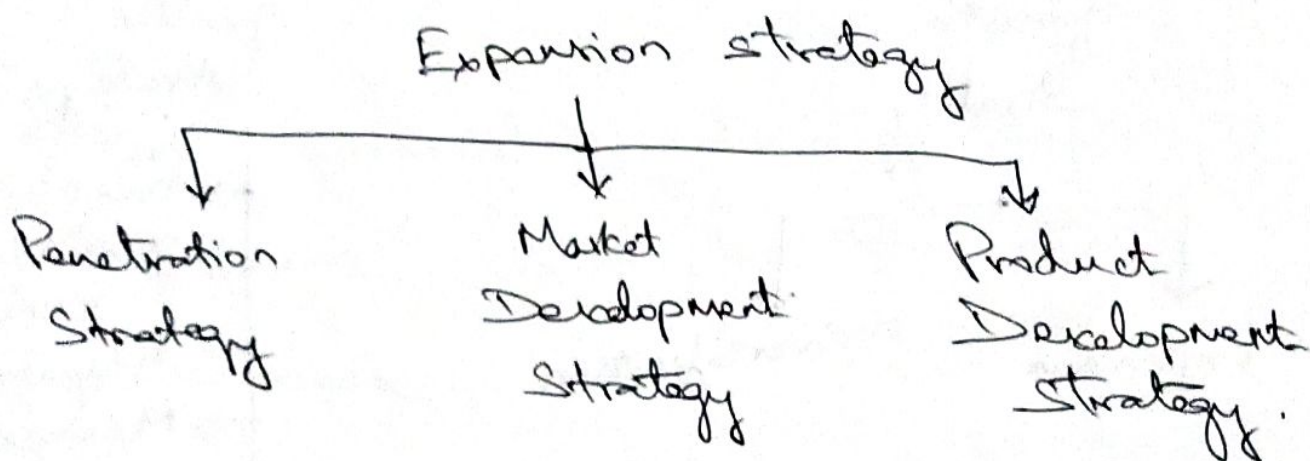 Expansion strategy
Penetration
Strategy
Market
Development
Strategy
Product
Development
Strategy.